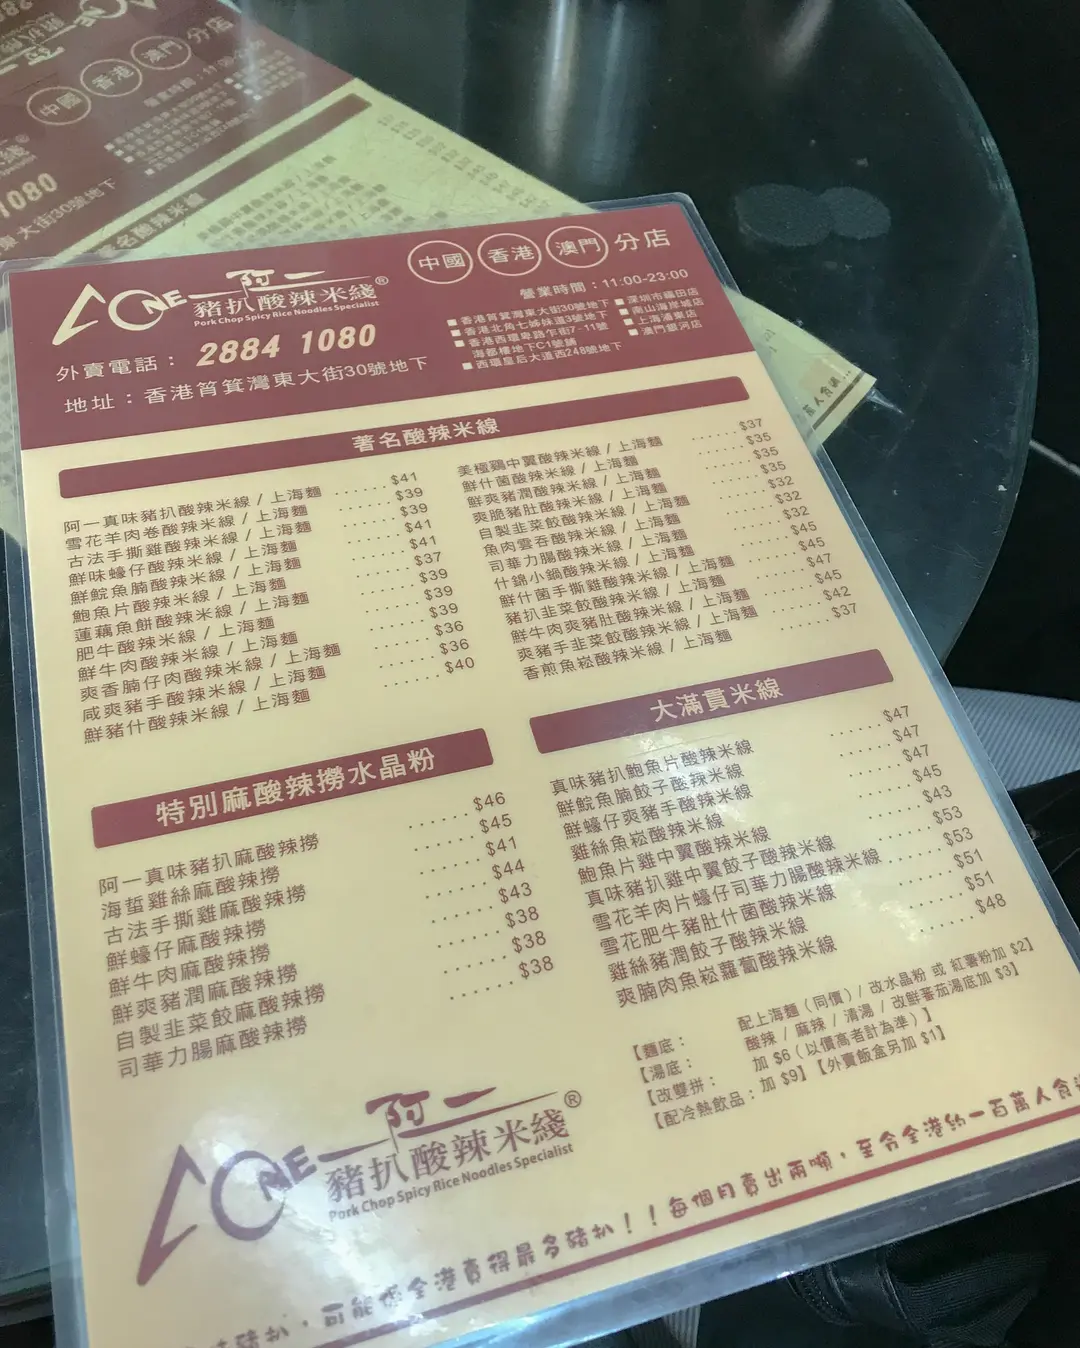 中國 香港 澳門 分店
營業時間：11:00-23:00
A ONE 阿一
豬扒酸辣米綫®
Pork Chop Spicy Rice Noodles Specialist
外賣電話： 2884 1080
地址：香港筲箕灣東大街30號地下
■香港筲箕灣東大街30號地下
■香港北角七姊妹道3號地下
■香港西環卑路乍街7-11號
海都樓地下C1號舖
■西環皇后大道西248號地下
■深圳市福田店
■南山海岸城店
■上海浦東店
■澳門銀河店
著名酸辣米線
阿一真味豬扒酸辣米線 / 上海麵 ······ $41
雪花羊肉卷酸辣米線 / 上海麵 ······ $39
古法手撕雞酸辣米線 / 上海麵 ······ $39
鮮味蠔仔酸辣米線 / 上海麵 ······ $41
鮮鯇魚腩酸辣米線 / 上海麵 ······ $41
鮑魚片酸辣米線 / 上海麵 ······ $37
蓮藕魚餅酸辣米線 / 上海麵 ······ $39
肥牛酸辣米線 / 上海麵 ······ $39
鮮牛肉酸辣米線 / 上海麵 ······ $39
爽香腩仔肉酸辣米線 / 上海麵 ······ $36
咸爽豬手酸辣米線 / 上海麵 ······ $36
鮮豬什酸辣米線 / 上海麵 ······ $40
美極鷄中翼酸辣米線 / 上海麵 ······ $37
鮮什菌酸辣米線 / 上海麵 ······ $35
鮮爽豬潤酸辣米線 / 上海麵 ······ $35
爽脆豬肚酸辣米線 / 上海麵 ······ $35
自製韭菜餃酸辣米線 / 上海麵 ······ $32
魚肉雲吞酸辣米線 / 上海麵 ······ $32
司華力腸酸辣米線 / 上海麵 ······ $32
什錦小鍋酸辣米線 / 上海麵 ······ $45
鮮什菌手撕雞酸辣米線 / 上海麵 ······ $45
豬扒韭菜餃酸辣米線 / 上海麵 ······ $47
鮮牛肉爽豬肚酸辣米線 / 上海麵 ······ $45
爽豬手韭菜餃酸辣米線 / 上海麵 ······ $42
香煎魚崧酸辣米線 / 上海麵 ······ $37
特別麻酸辣撈水晶粉
阿一真味豬扒麻酸辣撈 ······ $46
海蜇雞絲麻酸辣撈 ······ $45
古法手撕雞麻酸辣撈 ······ $41
鮮蠔仔麻酸辣撈 ······ $44
鮮牛肉麻酸辣撈 ······ $43
鮮爽豬潤麻酸辣撈 ······ $38
自製韭菜餃麻酸辣撈 ······ $38
司華力腸麻酸辣撈 ······ $38
大滿貫米線
真味豬扒鮑魚片酸辣米線 ······ $47
鮮鯇魚腩餃子酸辣米線 ······ $47
鮮蠔仔爽豬手酸辣米線 ······ $47
雞絲魚崧酸辣米線 ······ $45
鮑魚片雞中翼酸辣米線 ······ $43
真味豬扒雞中翼餃子酸辣米線 ······ $53
雪花羊肉片蠔仔司華力腸酸辣米線 ······ $53
雪花肥牛豬肚什菌酸辣米線 ······ $51
雞絲豬潤餃子酸辣米線 ······ $51
爽腩肉魚崧蘿蔔酸辣米線 ······ $48
【麵底： 配上海麵（同價）/ 改水晶粉 或 紅薯粉加 $2】
【湯底： 酸辣 / 麻辣 / 清湯 / 改鮮蕃茄湯底加 $3】
【改雙拼： 加 $6（以價高者計為準）】
【配冷熱飲品：加 $9】【外賣飯盒另加 $1】
A ONE 阿一
豬扒酸辣米綫®
Pork Chop Spicy Rice Noodles Specialist
豬扒，可能係全港賣得最多豬扒！！每個月賣出兩噸，至令全港約一百萬人食